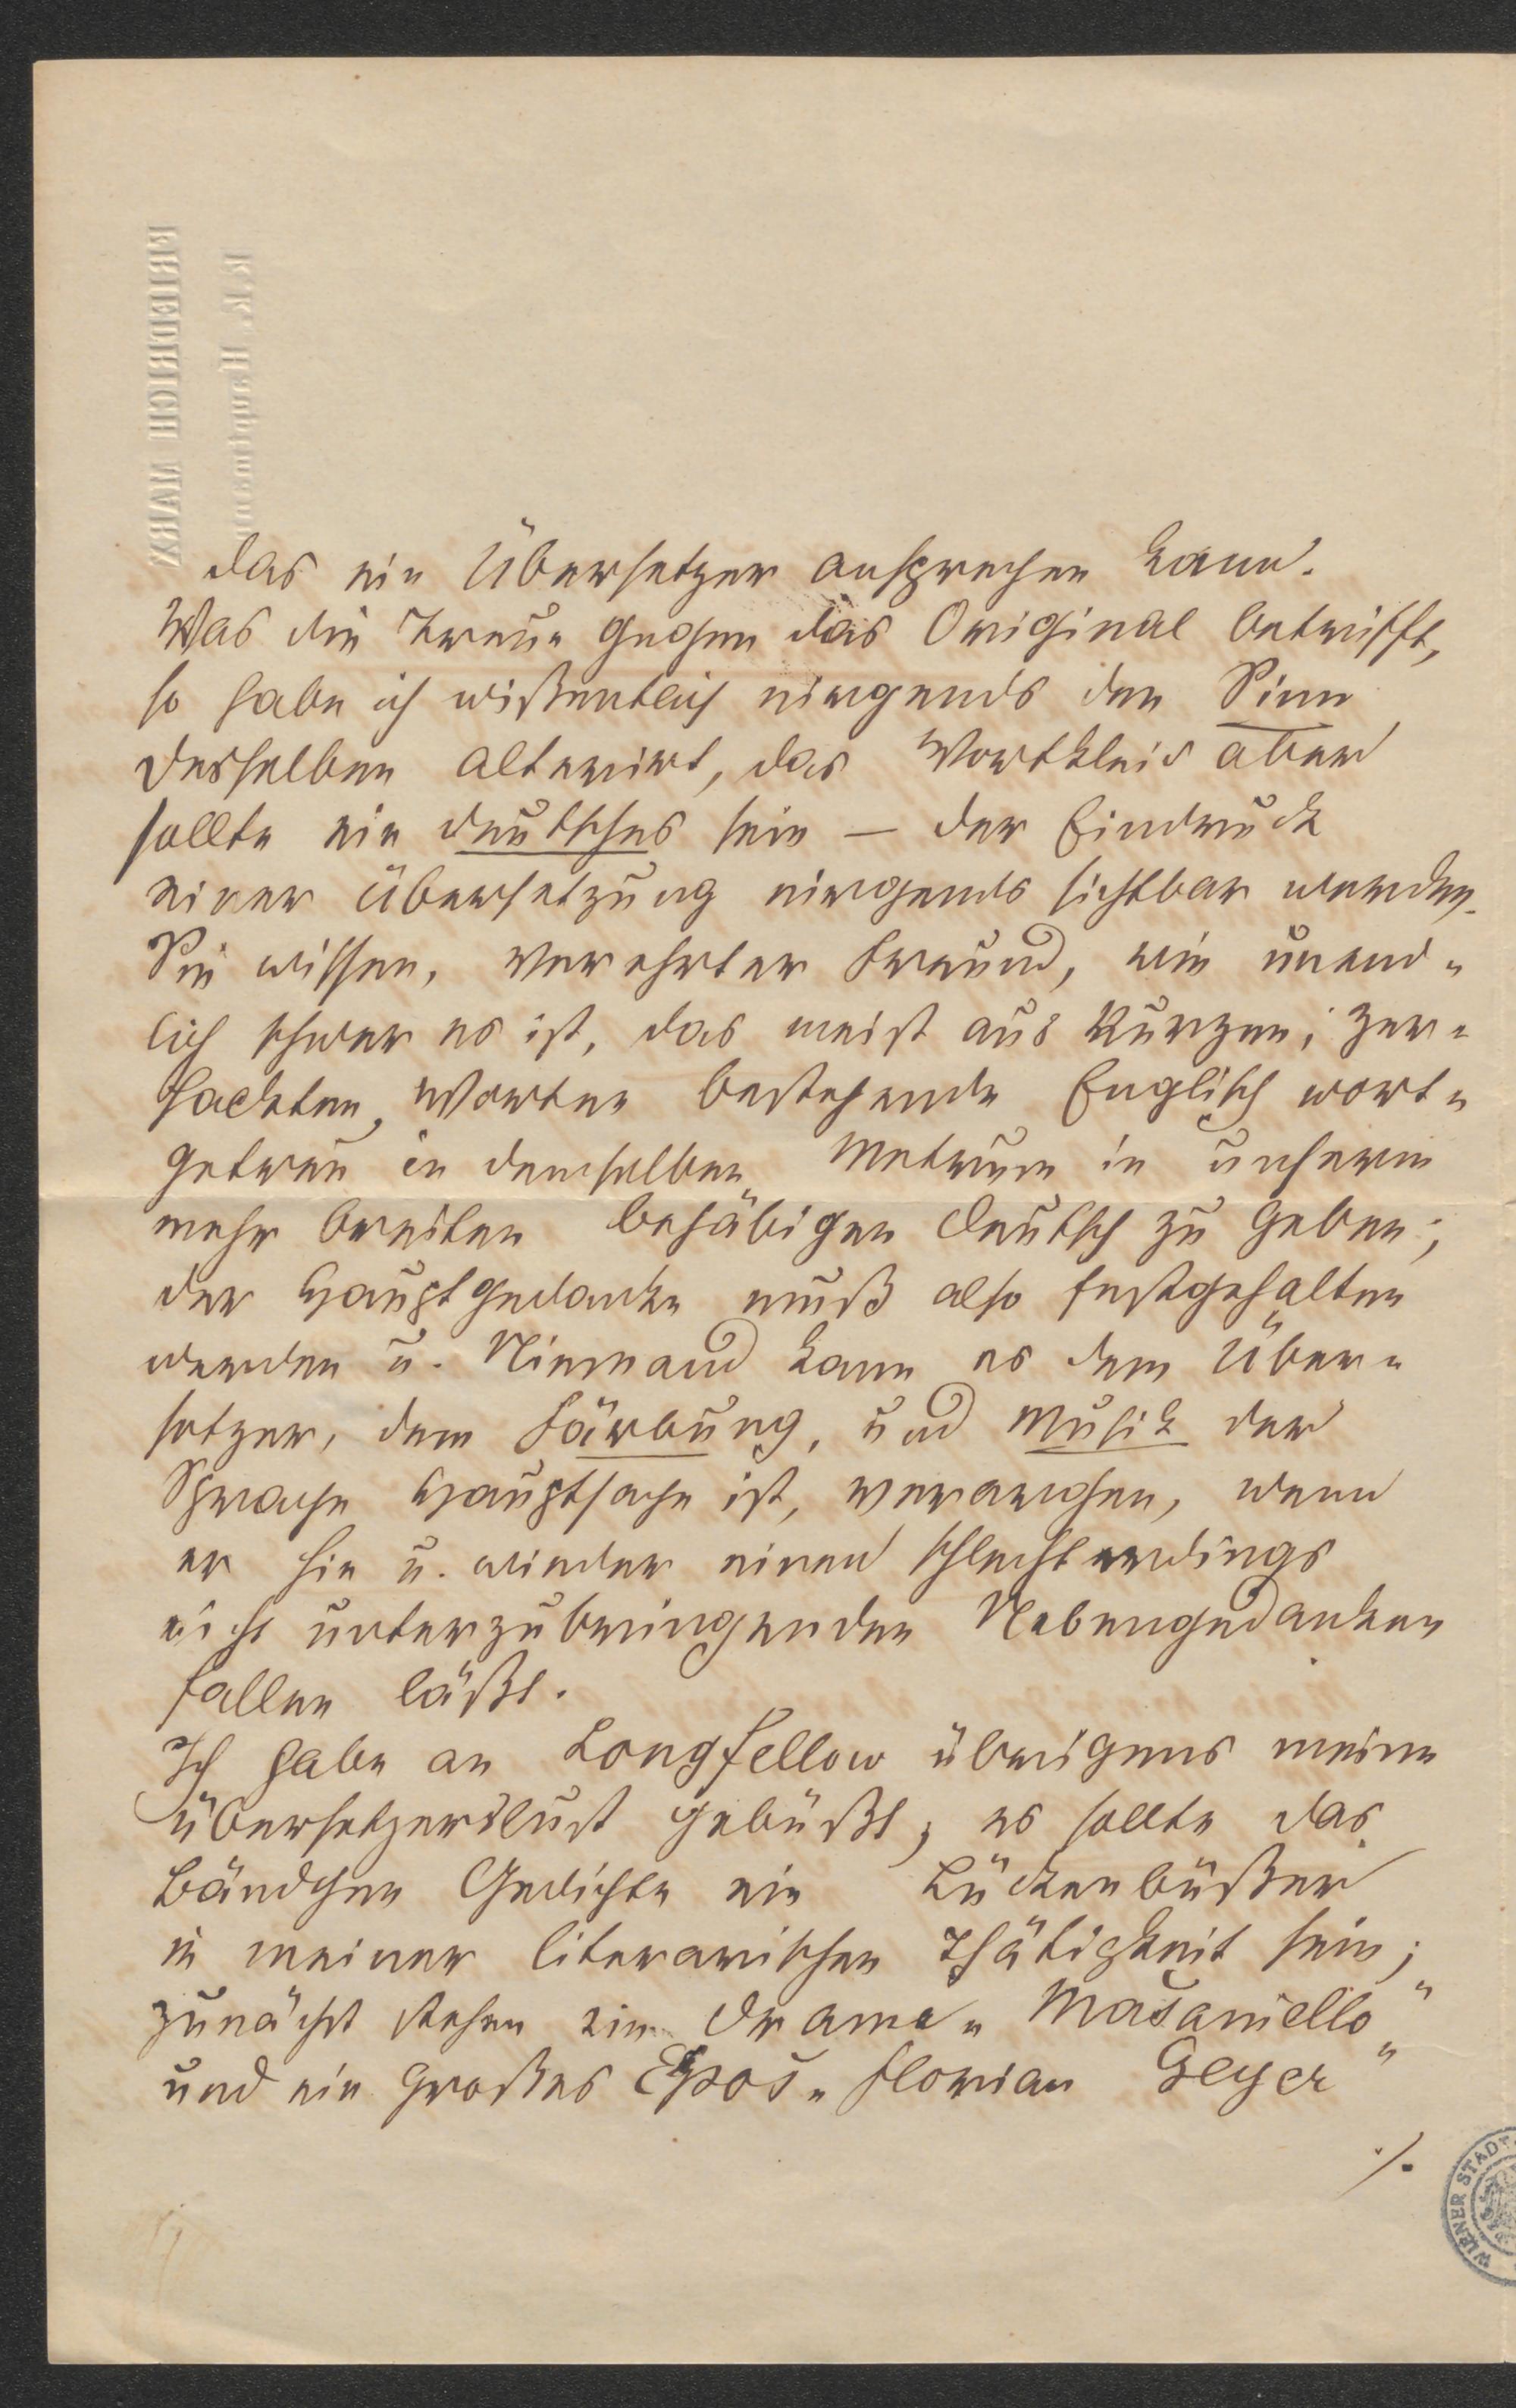 FRIEDRICH MARX
K.K. Hauptmann
das ein Übersetzer ansprechen kann.
Was die Treue gegen das Original betrifft,
so habe ich wißentlich nirgends den Sinn
desselben alterirt, das Wortkleid aber
sollte ein deutsches sein — der Eindruck
einer Übersetzung nirgends sichtbar werden.
Sie wissen, verehrter Freund, wie unend-
lich schwer es ist, das meist aus kurzen, zer-
hackten Worten bestehende Englisch wort-
getreu in demselben Metrum in unserm
mehr breiten behäbigen Deutsch zu geben;
der Hauptgedanke muß also festgehalten
werden u. Niemand kann es dem Über-
setzer, dem Färbung, und Musik der
Sprache Hauptsache ist, verargen, wenn
er hie u. wieder einen schlechterdings
nicht unterzubringenden Nebengedanken
fallen läßt.
Ich habe an Longfellow übrigens meine
Übersetzerslust gebüßt, es sollte das
Bändchen Gedichte ein Lückenbüßer
in meiner literarischen Thätigkeit sein;
zunächst stehen ein Drama „Masaniello"
und ein großes Epos „Florian Geyer"
./.
WIENER STADT